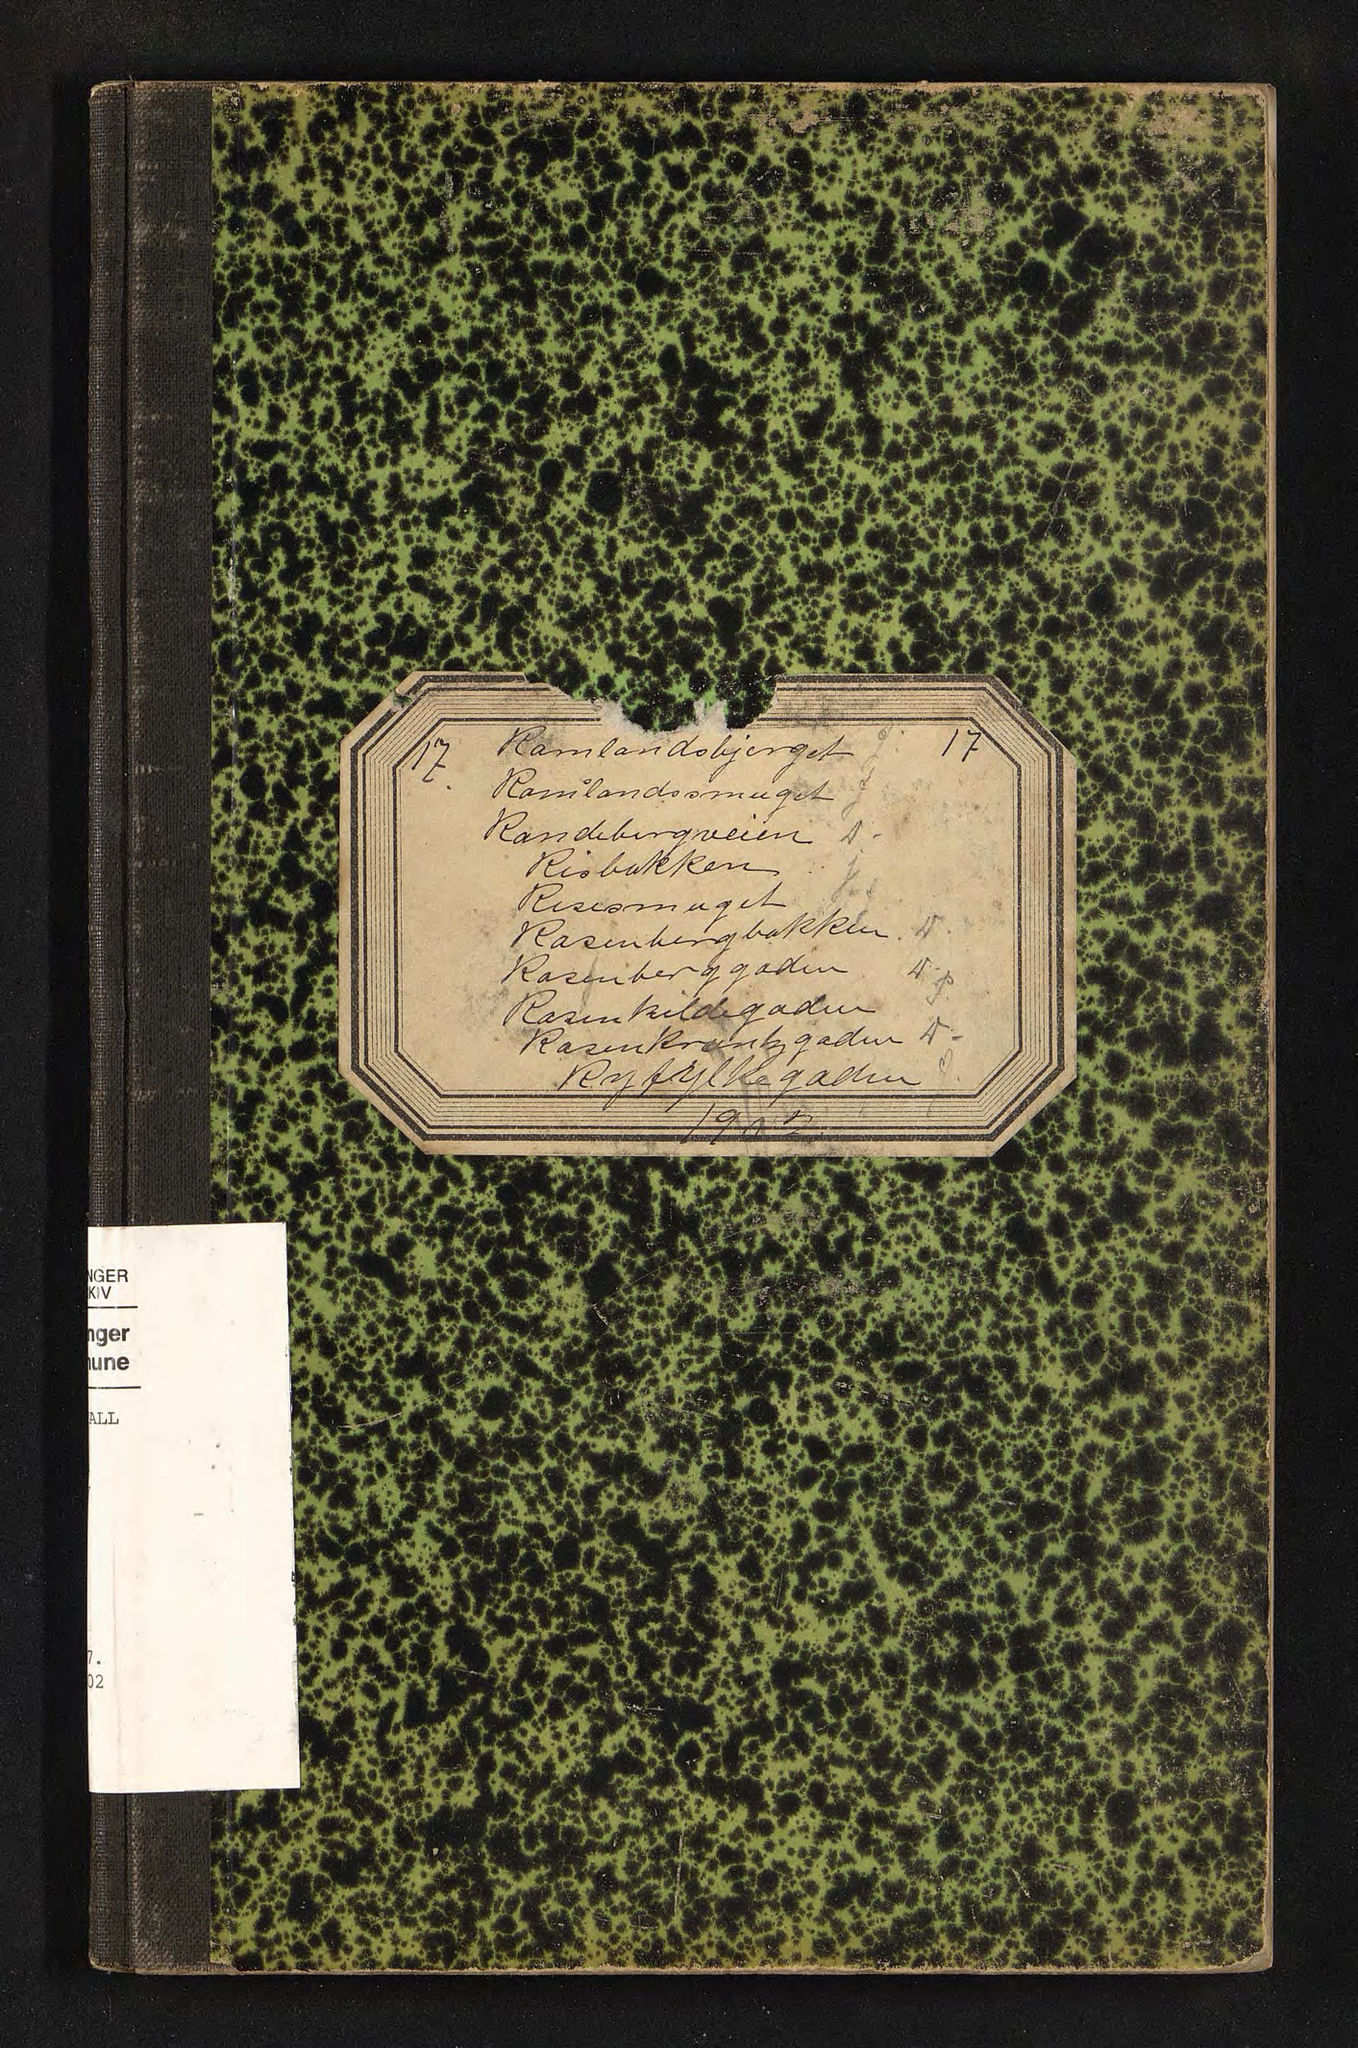 17. Ramlandsbjerget 17
Ramlandssmuget
Randebergveien
Risbakken
Risesmuget
Rosenbergbakken
Rosenberggaden
Rosenkildegaden
Rosenkrantzgaden
Ryfylkegaden
1912.
NGER
KIV
nger
mune
ALL
7.
02